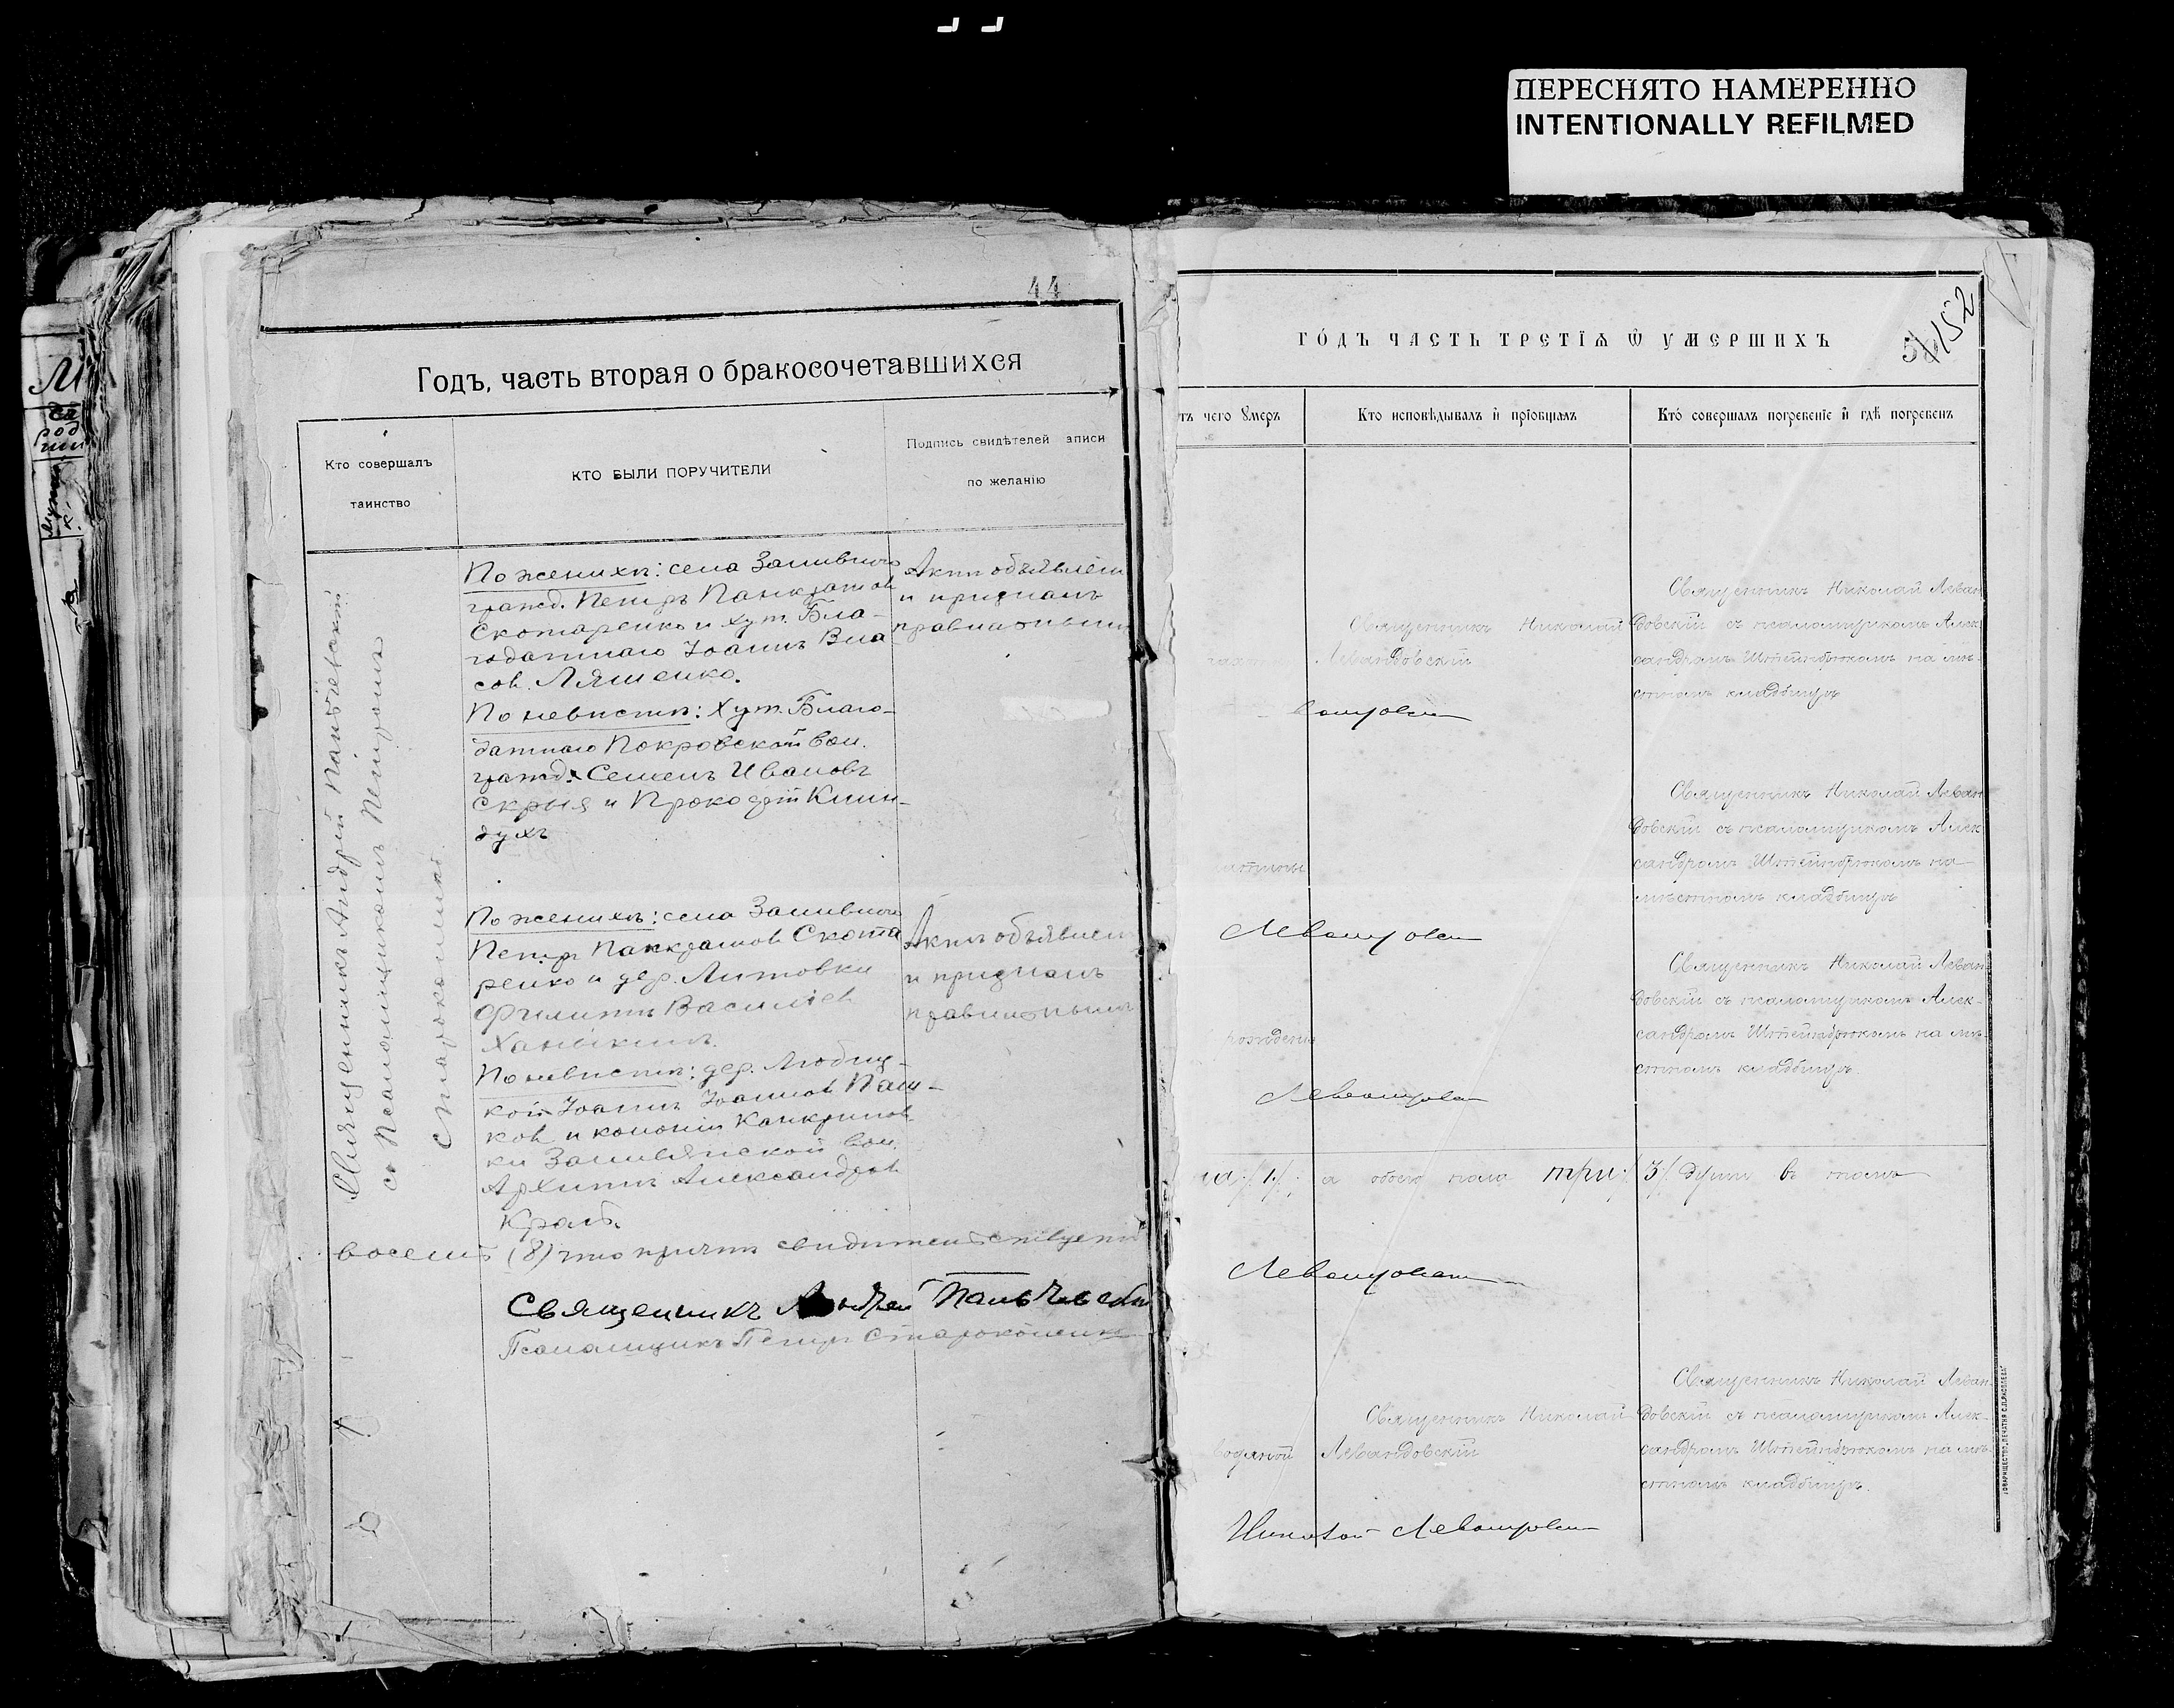 ПЕРЕСНЯТО НАМЕРЕННО
INTENTIONALLY REFILMED
44
Годъ, часть вторая о бракосочетавшихся
Кто совершалъ
таинство
КТО БЫЛИ ПОРУЧИТЕЛИ
Подпись свидѣтелей записи
по желанію
Священникъ Андрей Пальчевскій
съ Псаломщикомъ Петромъ
Староколенко
По женихѣ: села Заливного
гражд. Петръ Панкратов
Скотаренко и хут. Бла-
годатнаго Іоаннъ Вла
сов. Ляшенко.
По невѣстѣ: Хут. Благо-
датнаго Покровской вол.
гражд. Семенъ Ивановъ
Скрыя и Прокофій
духъ
Актъ объявлен
и признанъ
правильным
По женихѣ: села Заливного
Петръ Панкратов Скота
ренко и дер. Литовки
Филиппъ Васильев
По невѣстѣ: дер. Любиц-
кой Іоаннъ Іоаннов Паш-
ков и колоніи Канкринов
ки Заливянской вол.
Архипъ Александров
Актъ объявлен
и признанъ
правильным
восемь (8) что причтъ свидѣтельствуетъ
Священникъ Андрей Пальчевскі
Псаломщикъ Петръ Староколенко
ГОДЪ ЧАСТЬ ТРЕТІѦ Ѿ УМЕРШИХЪ
152
тъ чего Ꙋмеръ
Кто исповѣдывалъ и пріобщалъ
Кто совершалъ погребеніе и гдѣ погребенъ
Священникъ Николай
Левандовскій
Священникъ Николай Леван
довскій съ псаломщикомъ Алек
сандромъ Штейнбрюкомъ на мѣ-
стномъ кладбищѣ
Священникъ Николай Леван
довскій съ псаломщикомъ Алек
сандромъ Штейнбрюкомъ на
мѣстномъ кладбищѣ
Левандовскі
Священникъ Николай Леван
довскій съ псаломщикомъ Алек-
сандромъ Штейнбрюкомъ на мѣ-
стномъ кладбищѣ.
рожденія
Левандовскі
на /1/; а обоего пола три /3/ души въ томъ
Левандовскі
Священникъ Николай
водяной Левандовскій
Священникъ Николай Леван-
довскій съ псаломщикомъ Алек-
сандромъ Штейнбрюкомъ на мѣ-
стномъ кладбищѣ.
Николай Левандовскі